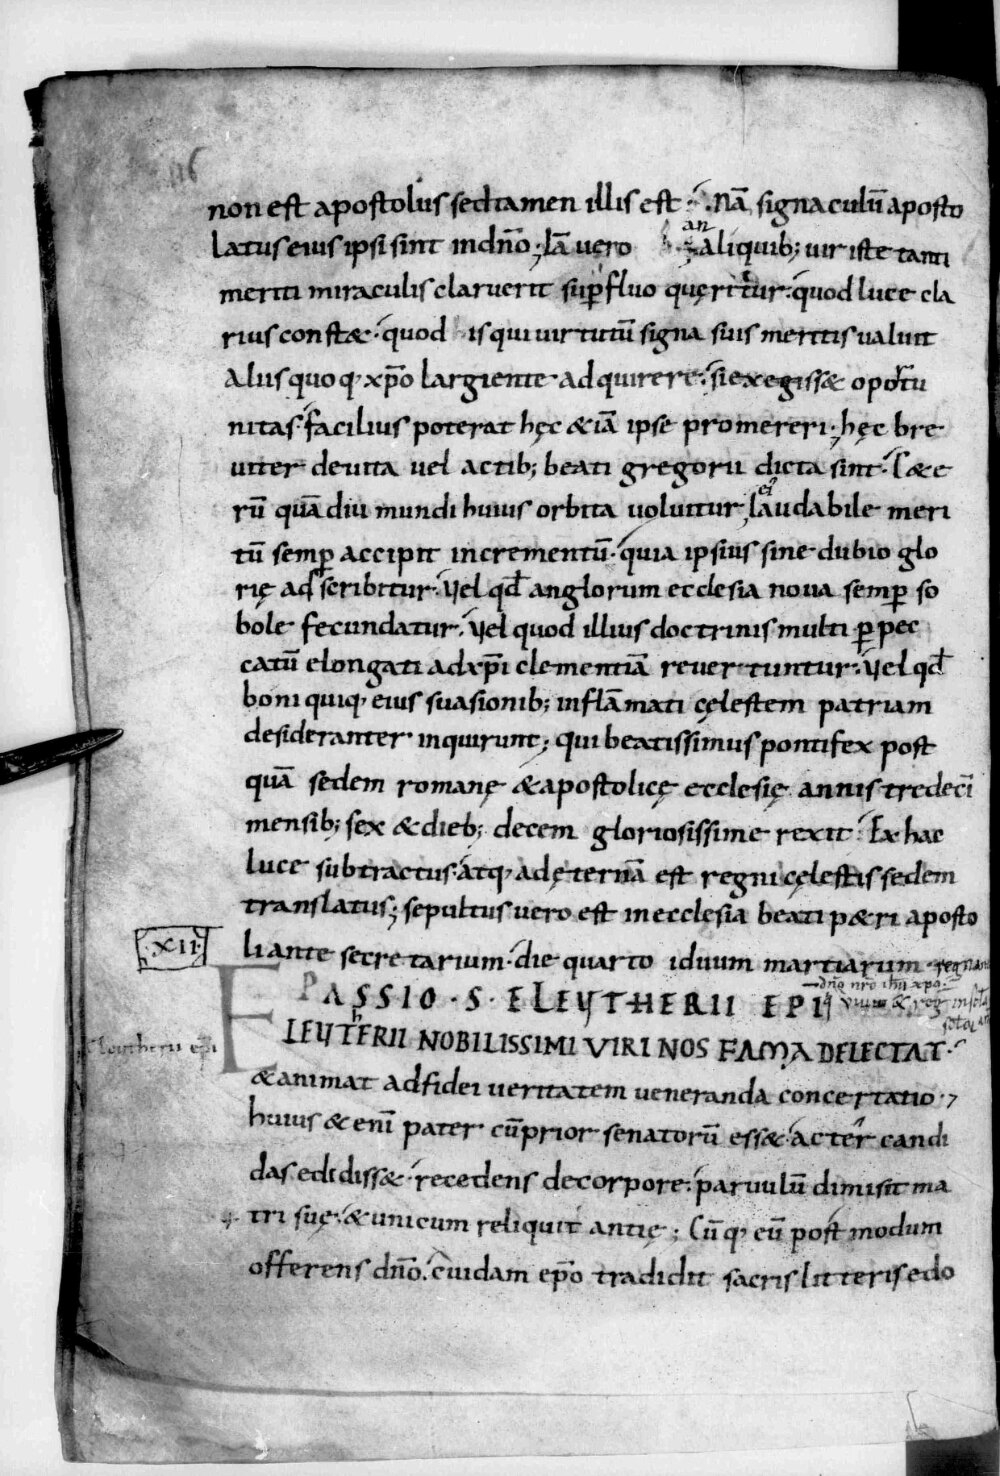 116
non est apostolus sed tamen illis est. Nā signaculū aposto
latus eius ipsi sint in dn̄o. Iā vero an aliquib; uir iste tanti
meriti miraculis claruerit sup̄fluo quęritur. quod luce cla
rius constæ. quod is qui uirtutū signa suis meritis ualuit
Aliis quoq; xp̄o largiente adquirere. si exegissæ oportu
nitas. facilius poterat hęc &iā ipse promereri. hęc bre
uiter de uita uel actib; beati gregorii dicta sint. Cæte
rū quādiu mundi huius orbita uoluitur, ei laudabile meri
tū semp̄ accipit incrementū. quia ipsius sine dubio glo
rię adscribitur. Vel qđ anglorum ecclesia noua semp̄ so
bole fecundatur. Vel quod illius doctrinis multi p̄ pec
catū elongati ad xp̄i clementiā reuertuntur. Vel qđ
boni quiq; eius suasionib; inflāmati cęlestem patriam
desideranter inquirunt; qui beatissimus pontifex post
quā sedem romanę &apostolicę ecclesię annis tredeci̅
mensib; sex &dieb; decem gloriosissime rexit. Ex hac
luce subtractus. atq; ad ęternā est regni cęlestis sedem
translatus; sepultus uero est in ecclesia beati pætri aposto
li ante secretarium. die quarto iduum martiarum. regnante
dn̄o nr̄o ihū xp̄o
·XII·
PASSIO · S · ELEYTHERII EPI
Eleytherii ep̄i
ELEYTHERII NOBILISSIMI VIRI NOS FAMA DELECTAT.
&animat ad fidei ueritatem ueneranda concertatio.
huius &eni̅ pater cū prior senatorū essæ. ac ter candi
das edidissæ. recedens de corpore. paruulū dimisit ma
tri suę. &unicum reliquit antię; Cūq; eū post modum
offerens dn̄o. cuidam ep̄o tradidit sacris litteris edo